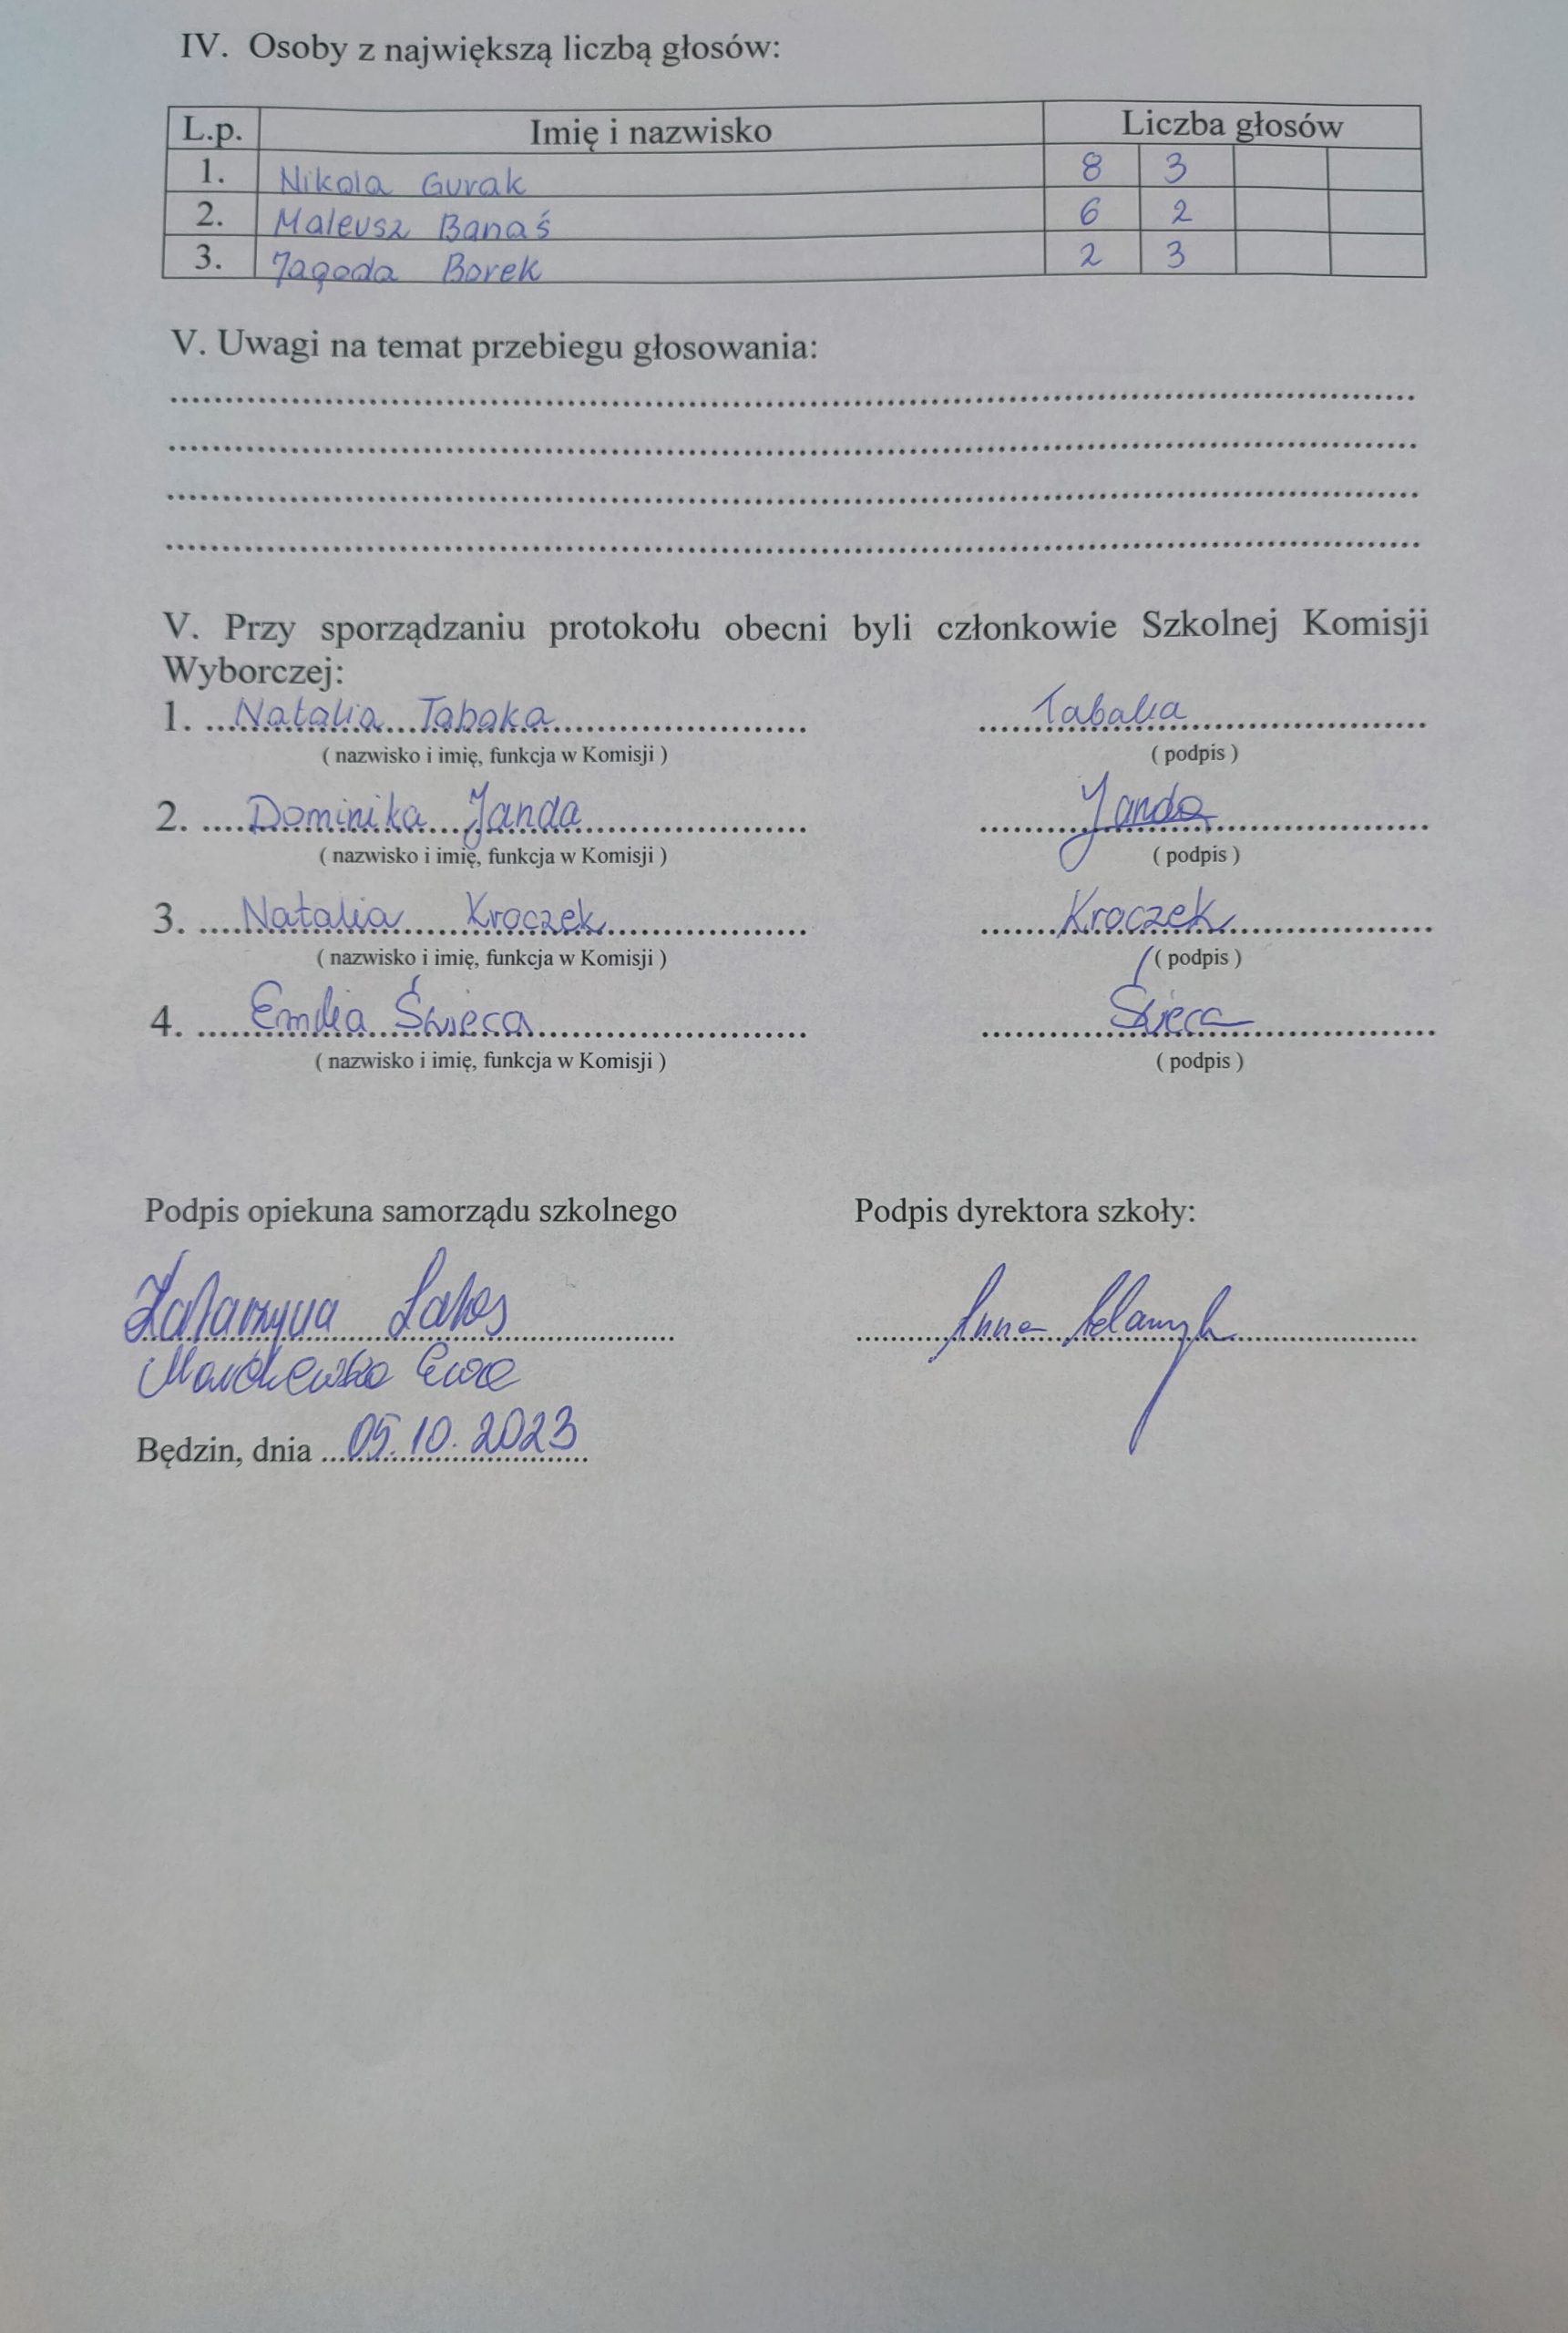 IV. Osoby z największą liczbą głosów:
L.p. Imię i nazwisko Liczba głosów
1. Nikola Gurak 8 3
2. Mateusz Banaś 6 2
3. Jagoda Borek 2 3
V. Uwagi na temat przebiegu głosowania:
V. Przy sporządzaniu protokołu obecni byli członkowie Szkolnej Komisji
Wyborczej:
1. Natalia Tabaka Tabaka
( nazwisko i imię, funkcja w Komisji ) ( podpis )
2. Dominika Janda Janda
( nazwisko i imię, funkcja w Komisji ) ( podpis )
3. Natalia Kroczek Kroczek
( nazwisko i imię, funkcja w Komisji ) ( podpis )
4. Emilia Świeca Świeca
( nazwisko i imię, funkcja w Komisji ) ( podpis )
Podpis opiekuna samorządu szkolnego Podpis dyrektora szkoły:
Katarzyna Anna
Ewa
Będzin, dnia 05.10.2023